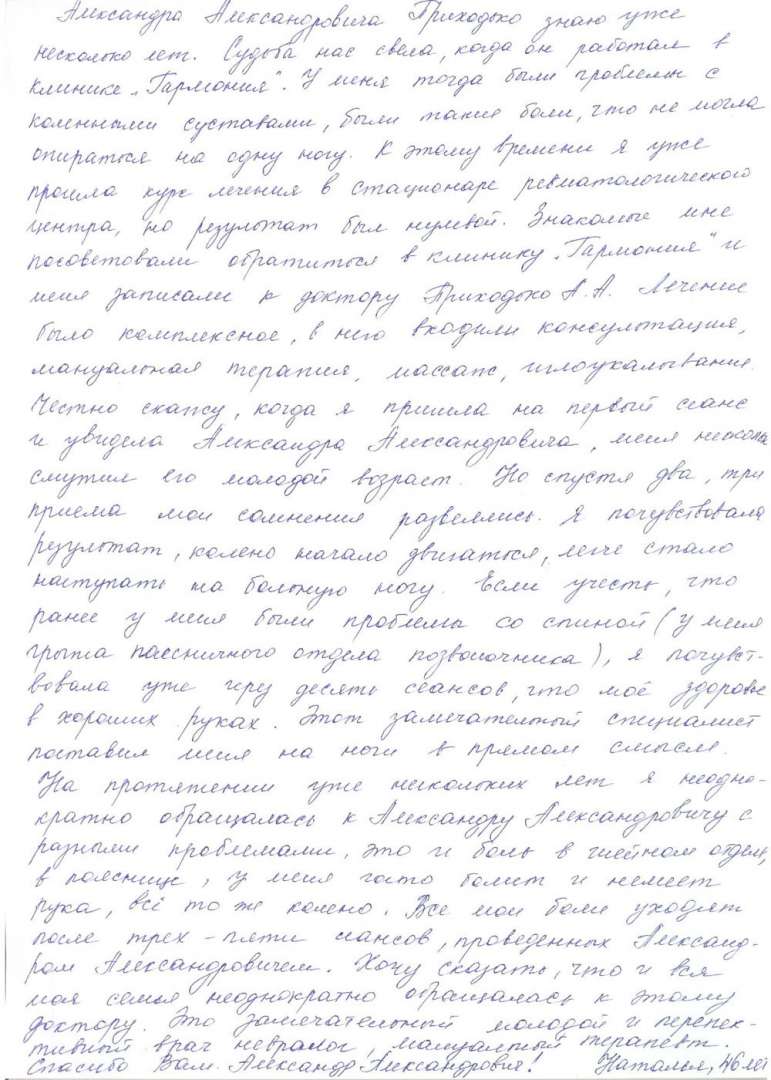 Александра Александровича Приходько знаю уже
несколько лет. Судьба нас свела, когда он работал в
клинике „Гармония". У меня тогда были проблемы с
коленными суставами, были такие боли, что не могла
опираться на одну ногу. К этому времени я уже
прошла курс лечения в стационаре ревматологического
центра, но результат был нулевой. Знакомые мне
посоветовали обратиться в клинику „Гармония" и
меня записали к доктору Приходько А.А. Лечение
было комплексное, в него входили консультация,
мануальная терапия, массаж, иглоукалывание.
Честно скажу, когда я пришла на первый сеанс
и увидела Александра Александровича, меня несколь
смутил его молодой возраст. Но спустя два, три
приема мои сомнения развеялись. Я почувствовала
результат, колено начало двигаться, легче стало
наступать на больную ногу. Если учесть, что
ранее у меня были проблемы со спиной (у меня
грыжа поясничного отдела позвоночника), я почувст-
вовала уже через десять сеансов, что моё здоровье
в хороших руках. Этот замечательный специалист
поставил меня на ноги в прямом смысле.
На протяжении уже нескольких лет я неодно-
кратно обращалась к Александру Александровичу с
разными проблемами, это и боль в шейном отделе,
в пояснице, у меня часто болит и немеет
рука, всё то же колено. Все мои боли уходят
после трех-пяти сеансов, проведенных Александ-
ром Александровичем. Хочу сказать, что и вся
моя семья неоднократно обращалась к этому
доктору. Это замечательный молодой и перспек-
тивный врач невролог, мануальный терапевт.
Спасибо Вам. Александр Александрович! Наталья, 46 лет